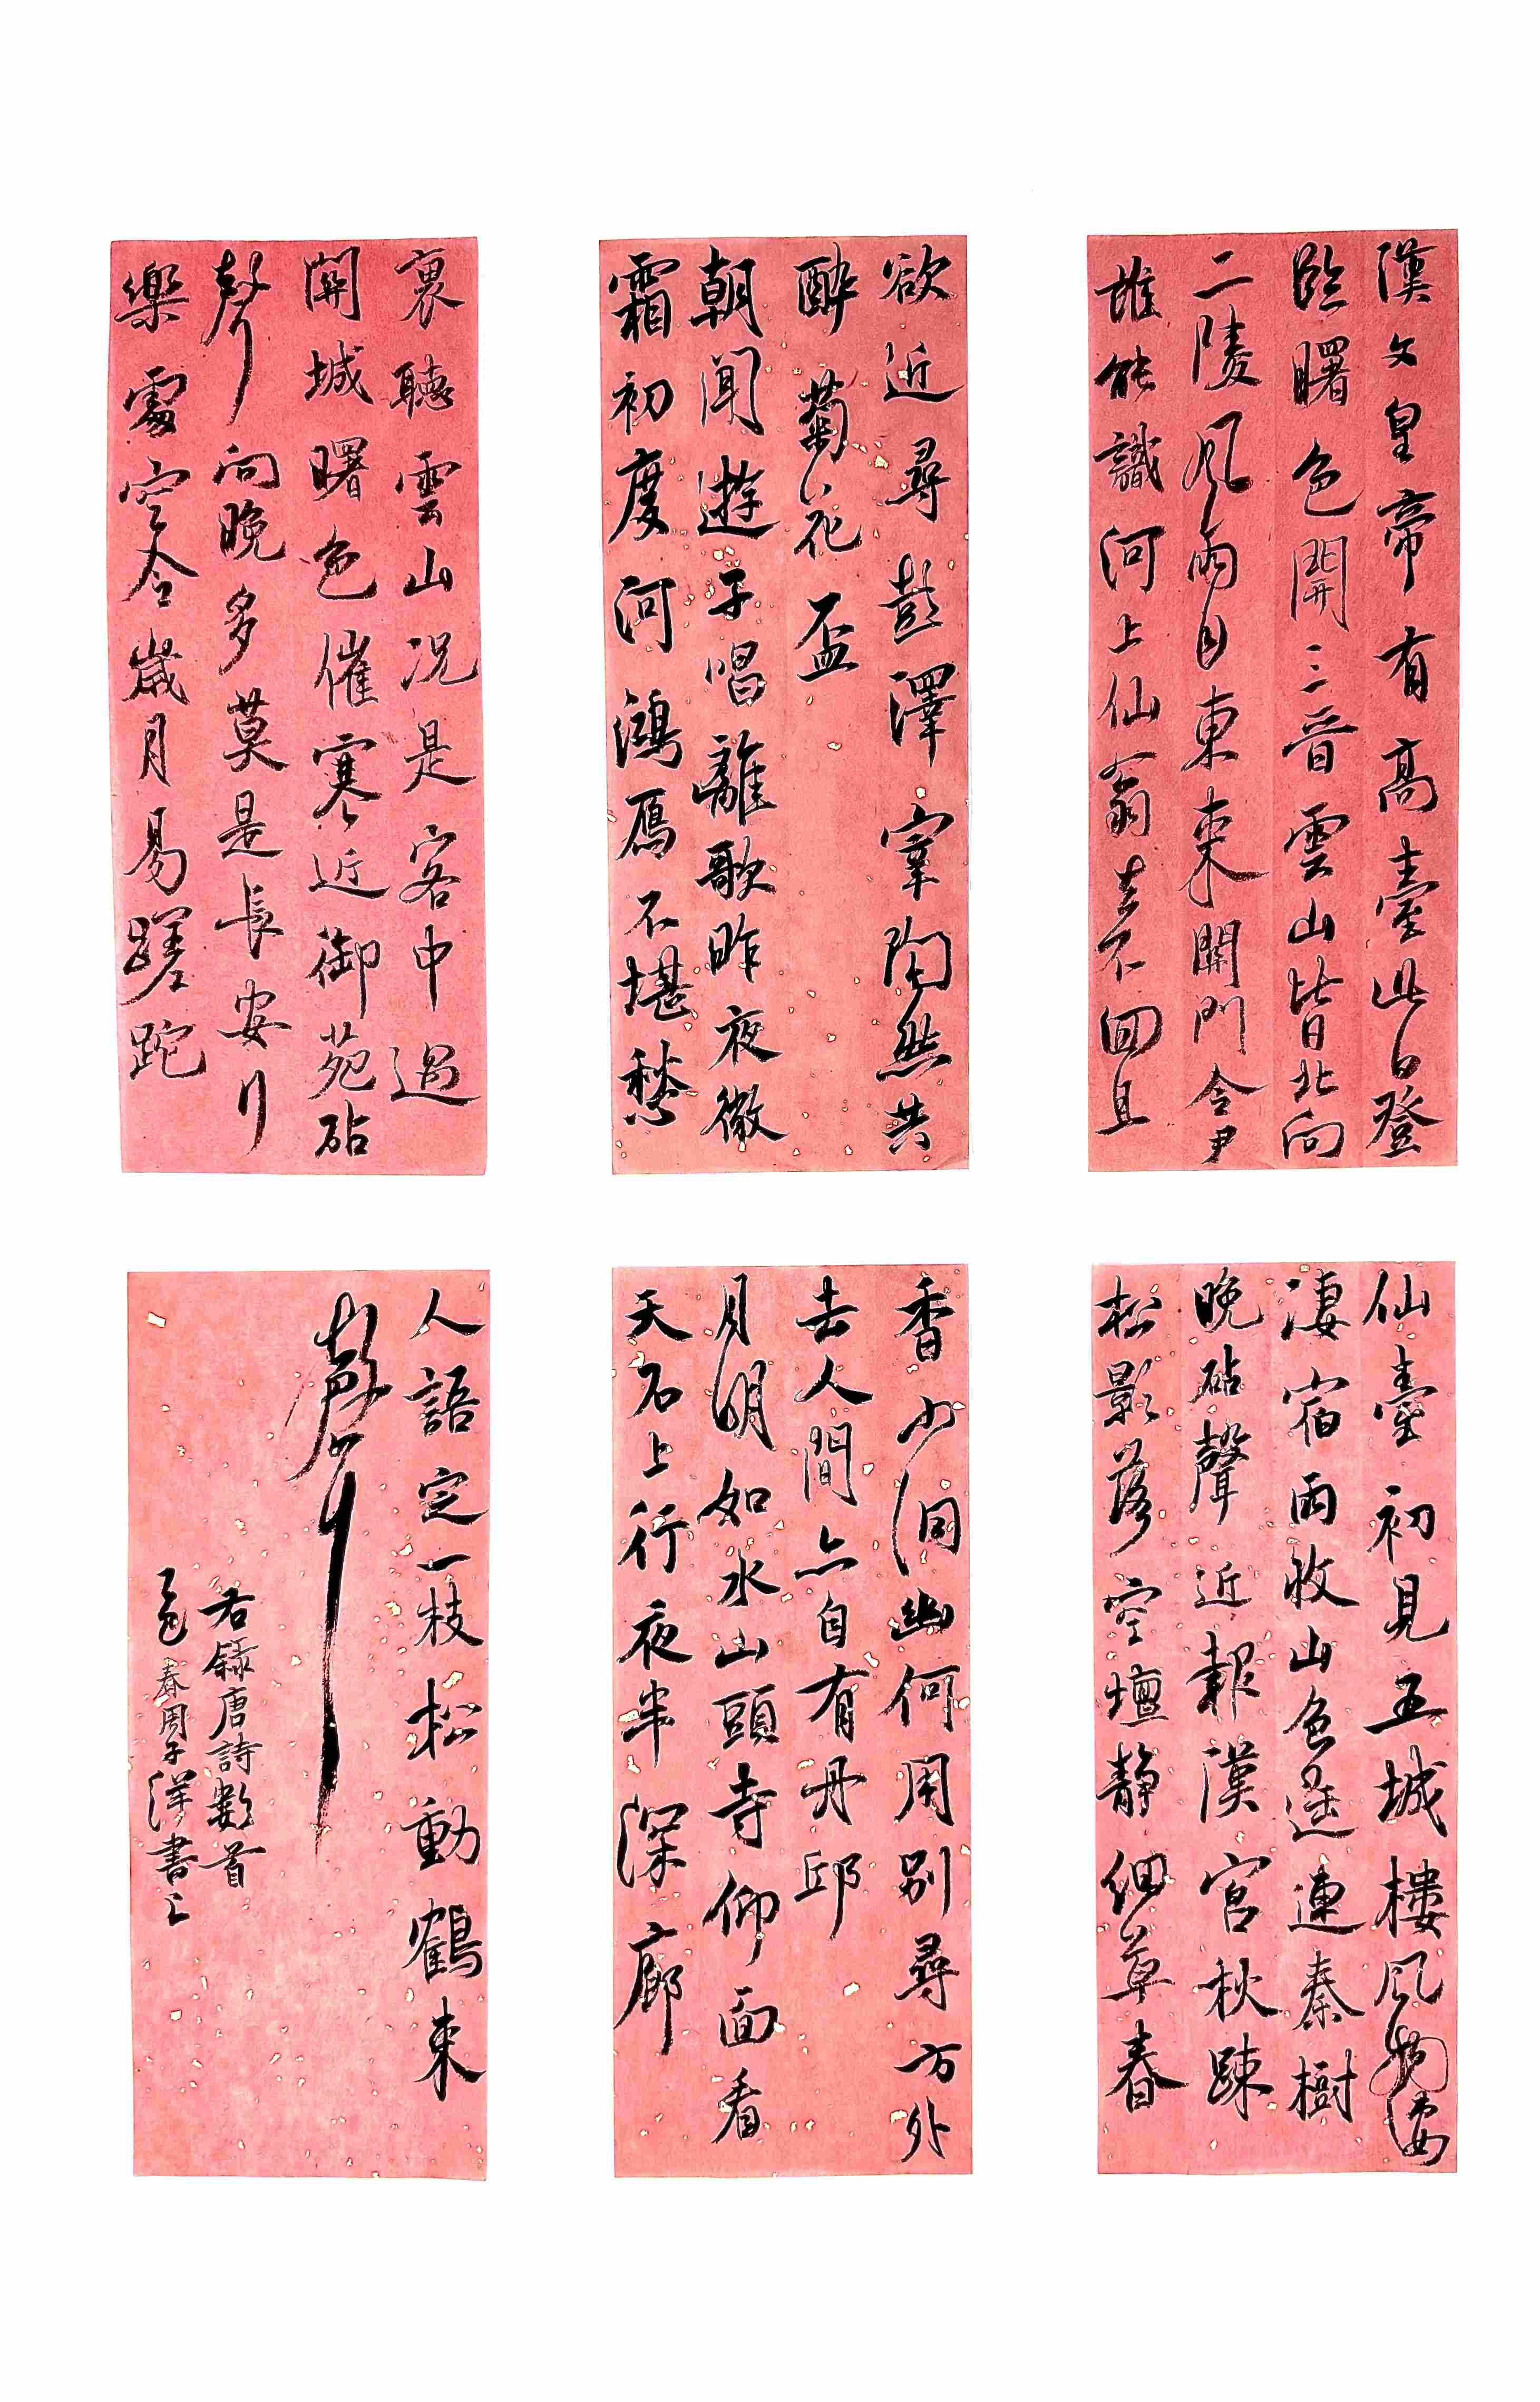 漢文皇帝有高臺此日登
臨曙色開三晉雲山皆北向
二陵風雨自東來關門令尹
誰能識河上仙翁去不回且
欲近尋彭澤宰陶然共
醉菊花盃
朝聞遊子唱離歌昨夜微
霜初度河鴻雁不堪愁
裏聽雲山況是客中過
關城曙色催寒近御苑砧
聲向晚多莫是長安行
樂處空令歲月易蹉跎
仙臺初見五城樓風物淒
淒宿雨收山色遥連秦樹
晚砧聲近報漢宮秋踈
松影落空壇靜細草春
香小洞幽何用別尋方外
去人間亦自有丹邱
月明如水山頭寺仰面看
天石上行夜半深廊
人語定一枝松動鶴來
聲
右錄唐詩數首
乙巳春周子洋書之